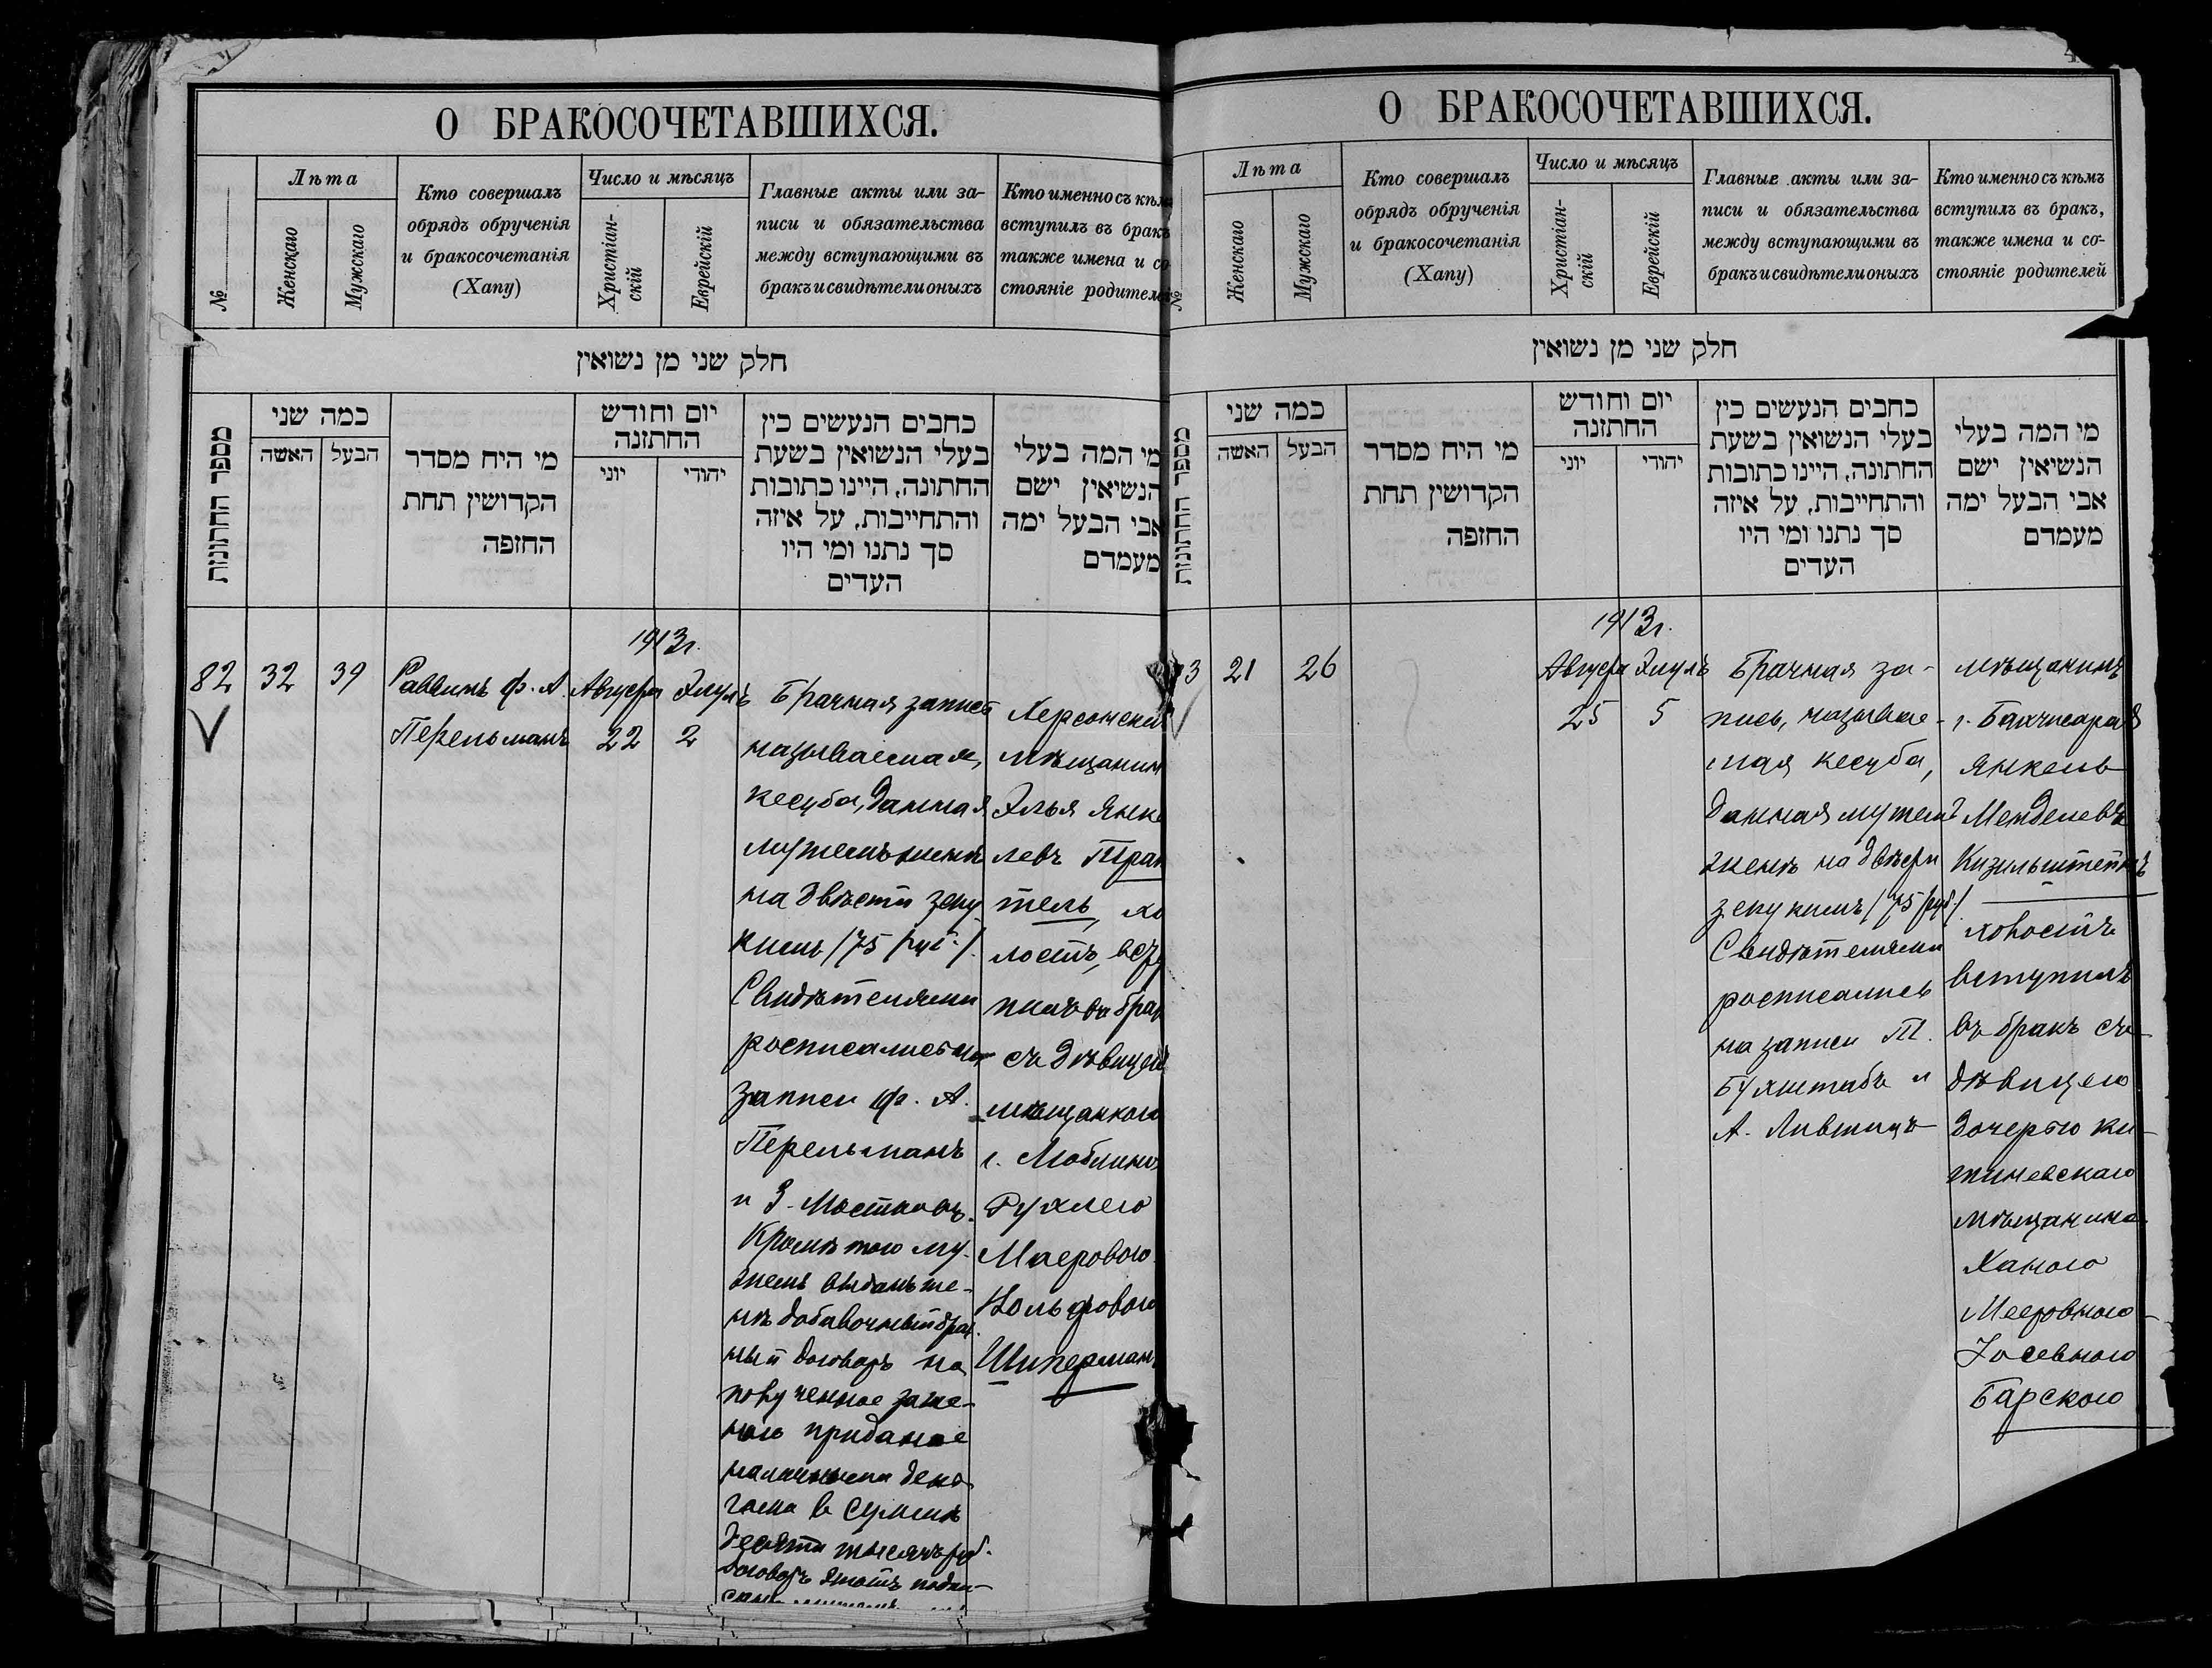 О БРАКОСОЧЕТАВШИХСЯ.
№
Лѣта
Женскаго
Мужскаго
Кто совершалъ
обрядъ обрученія
и бракосочетанія
(Хапу)
Число и мѣсяцъ
Христіан-
скій
Еврейскій
Главные акты или за-
писи и обязательства
между вступающими въ
бракъ и свидѣтели оныхъ
Кто именно съ кѣмъ
вступилъ въ бракъ
также имена и со
стояніе родителей
חלק שני מן נשואין
מספר החתונות
כמה שני
האשה
הבעל
מי היח מסדר
הקדושין תחת
החזפה
יום וחודש
החתזנה
יוני
יהודי
כחבים הנעשים כין
בעלי הנשואין בשעת
החתונה, היינו כתובות
והתחייבות, על איזה
סך נתנו ומי היו
העדים
מי המה בעלי
הנשיאין ישם
אבי הבעל ימה
מעמדם
1913г.
82
32
39
Раввинъ Ф. А.
Перельманъ
Августа
22
Элулъ
2
Брачная запись
называемая,
кесуба, данная
мужемъ женѣ
на двѣсти зеку
кимъ /75 руб./.
Свидѣтелями
росписались на
записи Ф. А.
Перельманъ
и З. Мостковъ.
Кромѣ того му-
жемъ выданъ же-
нѣ добавочный брач
ный договоръ на
полученное за же-
ною приданое
наличными день
гами в суммѣ
десяти тысячъ руб.
Договоръ этотъ подпи-
Херсонскій
мѣщанин
Элья Янке
левъ Тран
тель, хо
лостъ, всту
пилъ въ брак
съ дѣвицею
мѣщанкою
г. Люблина
Рухлею
Маеровою
Вольфовою
Шиперман
О БРАКОСОЧЕТАВШИХСЯ.
№
Лѣта
Женскаго
Мужскаго
Кто совершалъ
обрядъ обрученія
и бракосочетанія
(Хапу)
Число и мѣсяцъ
Христіан-
скій
Еврейскій
Главные акты или за-
писи и обязательства
между вступающими въ
бракъ и свидѣтели оныхъ
Кто именно съ кѣмъ
вступилъ въ бракъ,
также имена и со-
стояніе родителей
חלק שני מן נשואין
מספר החתונות
כמה שני
האשה
הבעל
מי היח מסדר
הקדושין תחת
החזפה
יום וחודש
החתזנה
יוני
יהודי
כחבים הנעשים כין
בעלי הנשואין בשעת
החתונה, היינו כתובות
והתחייבות, על איזה
סך נתנו ומי היו
העדים
מי המה בעלי
הנשיאין ישם
אבי הבעל ימה
מעמדם
1913г.
3
21
26
Августа
25
Элулъ
5
Брачная за-
пись, называе-
мая кесуба,
данная мужемъ
женѣ на двѣсти
зекукимъ /75 руб./
Свидѣтелями
росписались
на записи П.
Бухштабъ и
А. Лившицъ
мѣщанинъ
г. Бахчисарая
Янкель
Менделевъ
Кизильштейнъ
холостъ
вступилъ
въ бракъ съ
дѣвицею
дочерью ки-
шиневскаго
мѣщанина
Ханою
Мееровною
Іосевною
Барскою